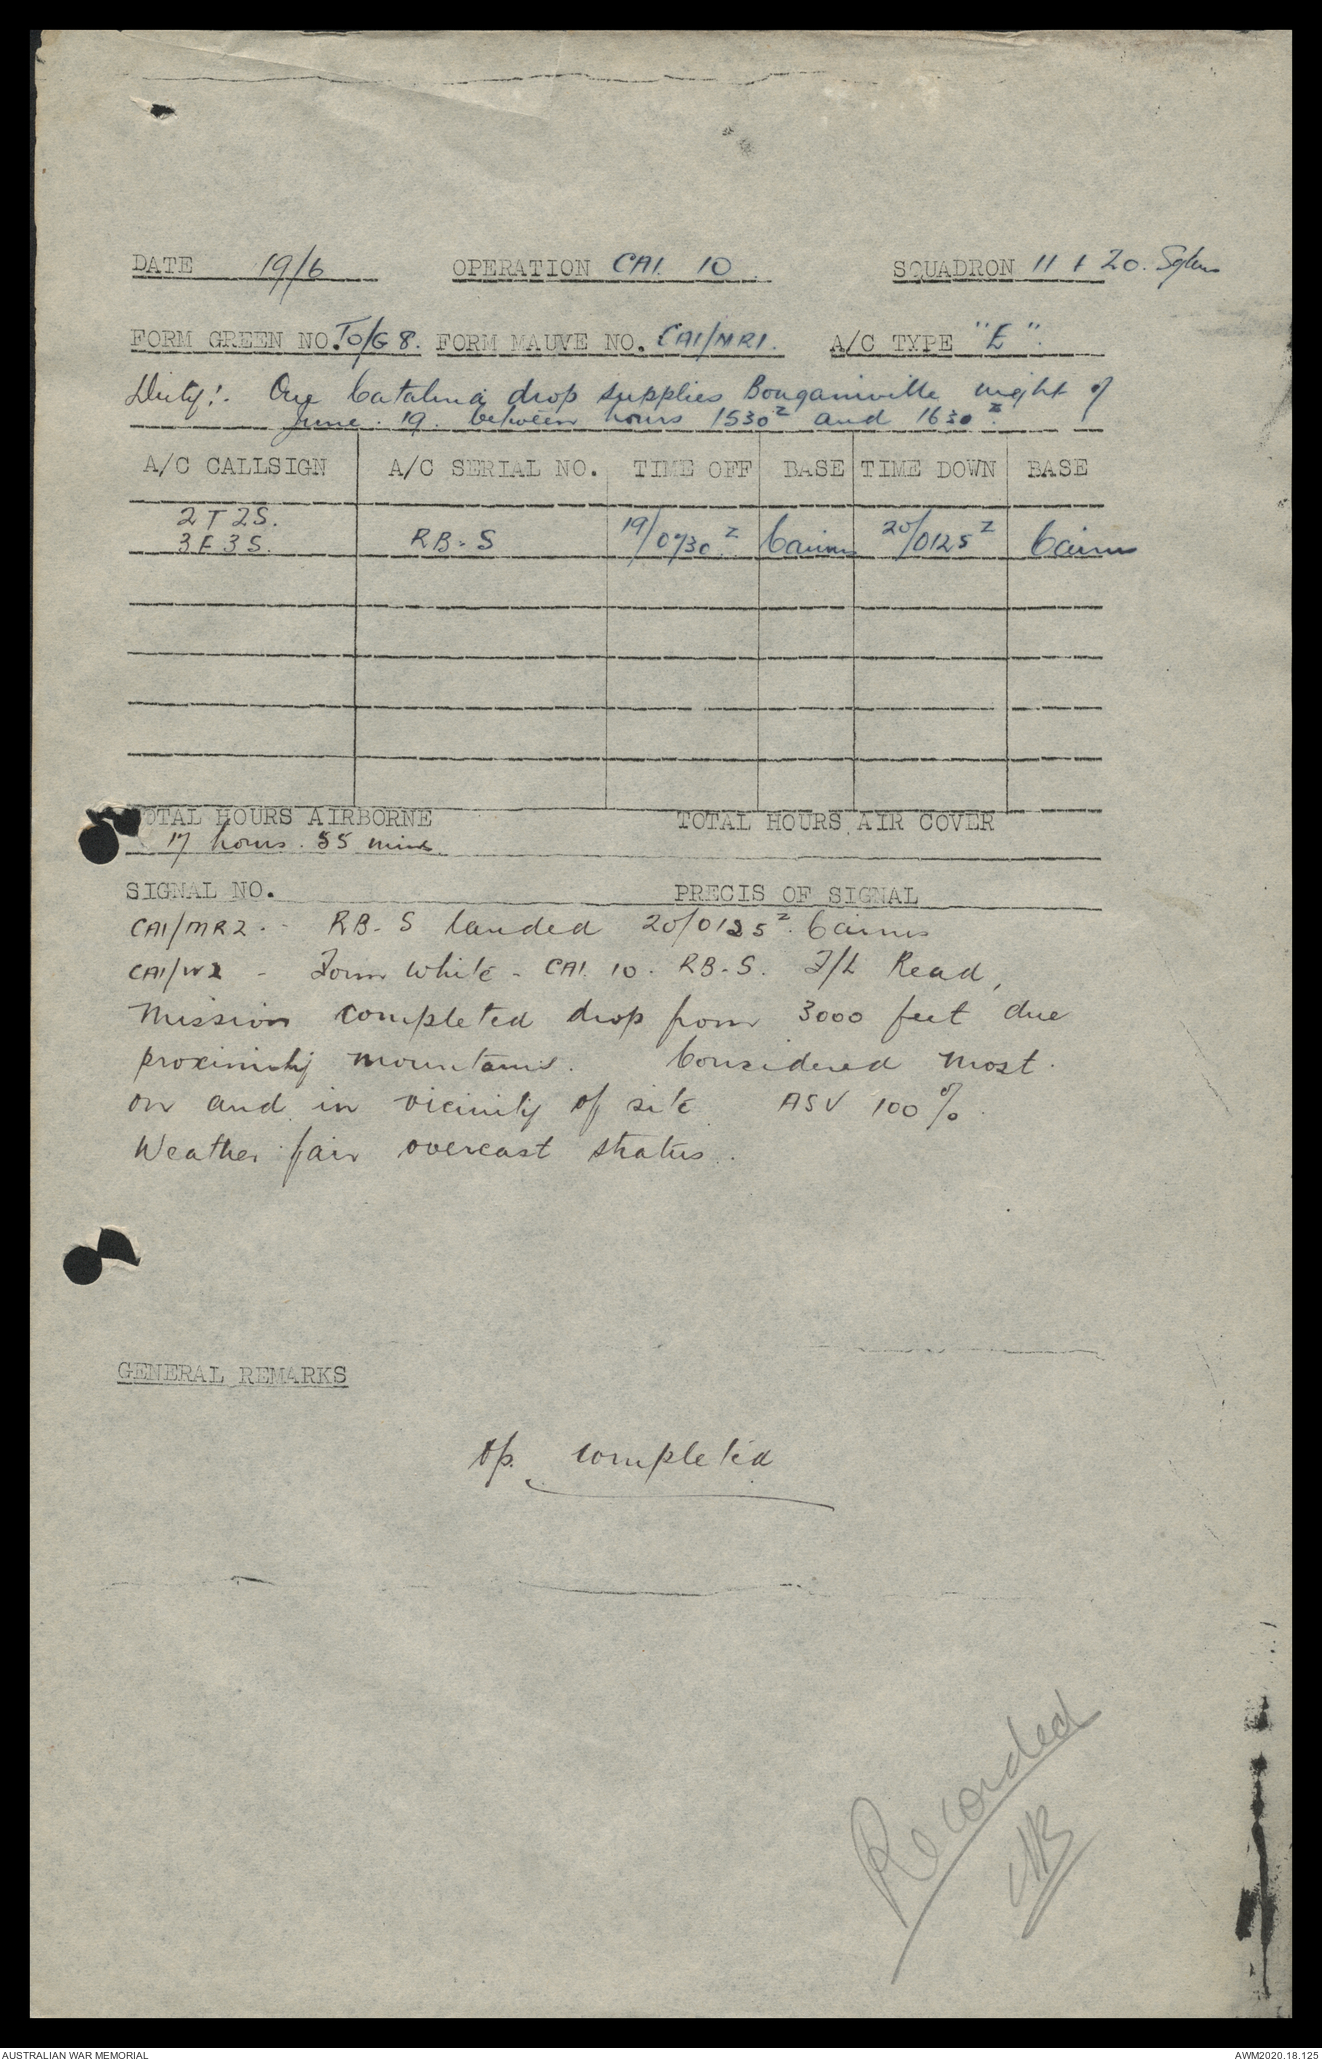 DATE 19/6 OPERATION CAI. 10 SQUADRON 11 + 20. Sqdns
FORM GREEN NO. TO/G 8. FORM MAUVE NO. CAI/MR1. A/C TYPE "E".
Duty:- One Catalina drop supplies Bougainville night of
June. 19. between hours 1530Z and 1630Z.
A/C CALLSIGN A/C SERIAL NO. TIME OFF BASE TIME DOWN BASE
2T2S.
3E3S. RB-S 19/0730Z Cairns 20/0125Z Cairns
TOTAL HOURS AIRBORNE TOTAL HOURS AIR COVER
17 hours. 55 mins.
SIGNAL NO. PRECIS OF SIGNAL
CAI/MR2. - RB-S landed 20/0125Z. Cairns
CAI/W2 - Form White - CAI. 10. RB-S. F/L Read,
Mission completed drop from 3000 feet due
proximity mountains. Considered most.
on and in vicinity of site ASV 100%.
Weather fair overcast stratus.
GENERAL REMARKS
Op. completed
Recorded
AUSTRALIAN WAR MEMORIAL AWM2020.18.125